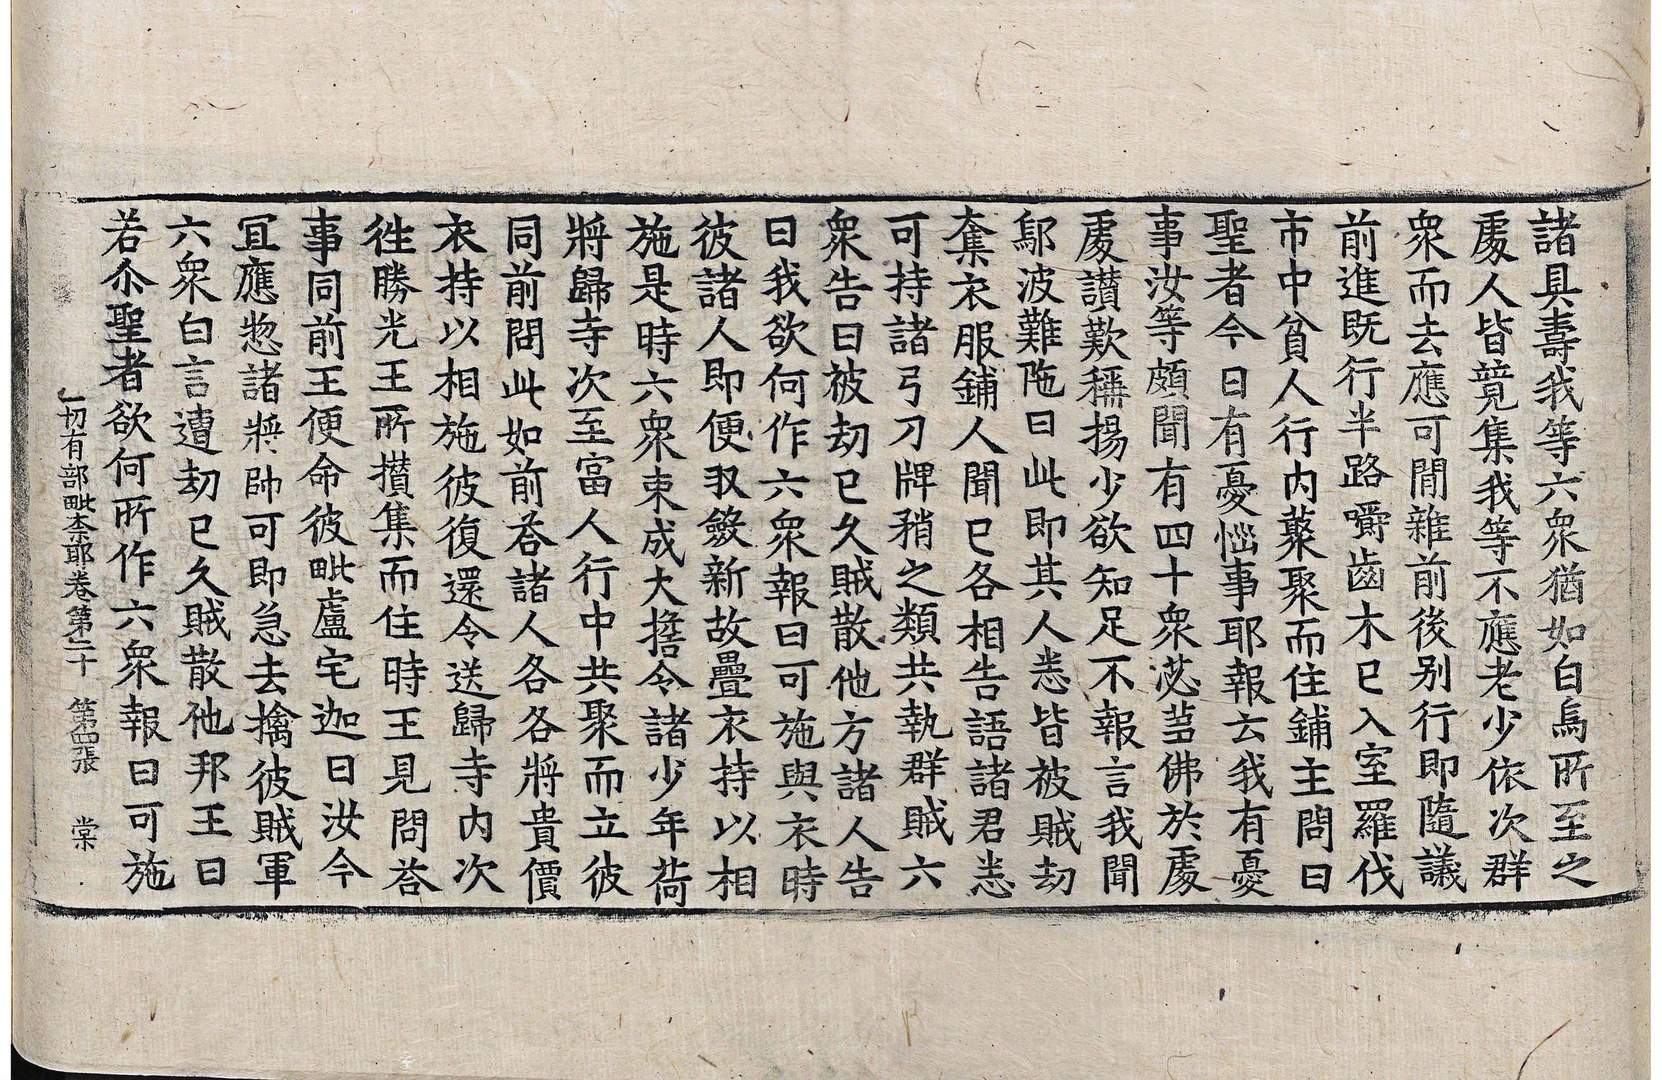 諸具壽我等六衆猶如白烏所至之
處人皆競集我等不應老少依次群
衆而去應可閒雜前後别行即隨議
前進既行半路嚼齒木已入室羅伐
市中貧人行内藂聚而住鋪主問曰
聖者今日有憂惱事耶報云我有憂
事汝等頗聞有四十衆苾蒭佛於處
處讃歎稱揚少欲知足不報言我聞
鄔波難陁曰此即其人悉皆被賊劫
奪衣服鋪人聞已各相告語諸君悉
可持諸弓刀牌矟之類共執群賊六
衆告曰被劫已久賊散他方諸人告
曰我欲何作六衆報曰可施與衣時
彼諸人即便㪺斂新故疊衣持以相
施是時六衆束成大擔令諸少年荷
將歸寺次至富人行中共聚而立彼
同前問此如前荅諸人各各將貴價
衣持以相施彼復還令送歸寺内次
徃勝光王所攢集而住時王見問荅
事同前王便命彼毗盧宅迦曰汝今
冝應惣諸將帥可即急去擒彼賊軍
六衆白言遭劫已久賊散他邦王曰
若尒聖者欲何所作六衆報曰可施
一切有部毗柰耶卷第二十 第四張 棠